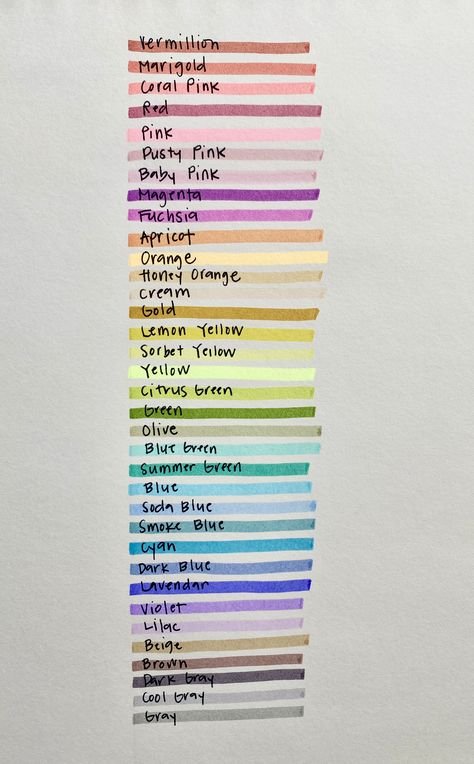 Vermillion
Marigold
Coral Pink
Red
Pink
Dusty Pink
Baby Pink
Magenta
Fuchsia
Apricot
Orange
Honey Orange
Cream
Gold
Lemon Yellow
Sorbet Yellow
Yellow
Citrus Green
Green
Olive
Blue Green
Summer Green
Blue
Soda Blue
Smoke Blue
Cyan
Dark Blue
Lavendar
Violet
Lilac
Beige
Brown
Dark Gray
Cool Gray
Gray